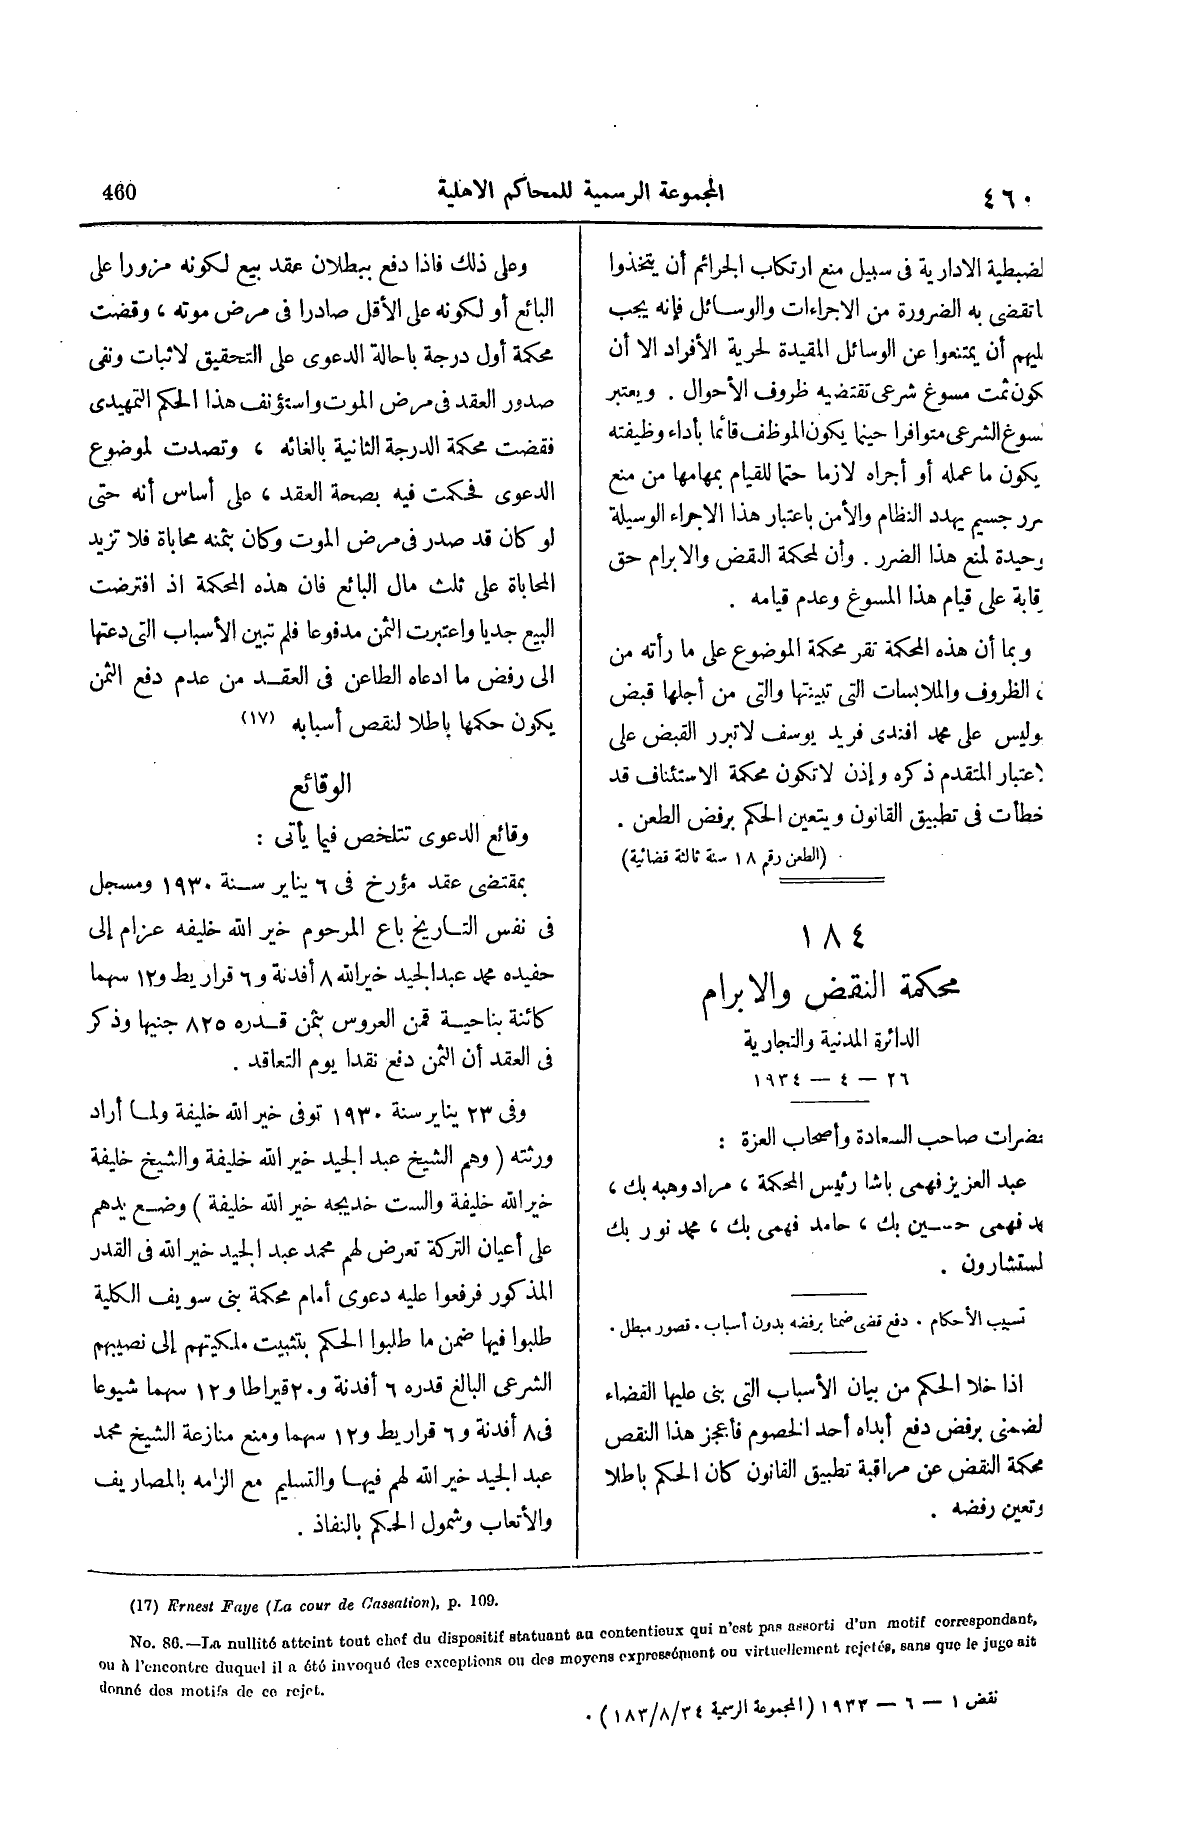 ٤٦٠
المجموعة الرسمية للمحاكم الاهلية
460
لضبطية الادارية فى سبيل منع ارتكاب الجرائم أن يتخذوا
اتقضى به الضرورة من الاجراءات والوسائل فإنه يجب
ليهم أن يمتنعوا عن الوسائل المقيدة لحرية الأفراد الا أن
كون ثمت مسوغ شرعى تقتضيه ظروف الأحوال . ويعتبر
لسوغ الشرعى متوافرا حينما يكون الموظف قائما بأداء وظيفته
يكون ما عمله أو أجراه لازما حتما للقيام بمهامها من منع
ـرر جسيم يهدد النظام والأمن باعتبار هذا الاجراء الوسيلة
وحيدة لمنع هذا الضرر . وأن لمحكمة النقض والابرام حق
رقابة على قيام هذا المسوغ وعدم قيامه .
وبما أن هذه المحكمة تقر محكمة الموضوع على ما رأته من
، الظروف والملابسات التى تبينتها والتى من أجلها قبض
بوليس على محمد افندى فريد يوسف لاتبرر القبض على
لاعتبار المتقدم ذكره وإذن لاتكون محكمة الاستئناف قد
خطأت فى تطبيق القانون ويتعين الحكم برفض الطعن .
(الطعن رقم ١٨ سنة ثالثة قضائية)
١٨٤
محكمة النقض والابرام
الدائرة المدنية والتجارية
٢٦ — ٤ — ١٩٣٤
ـضرات صاحب السعادة وأصحاب العزة :
عبد العزيز فهمى باشا رئيس المحكمة ، مراد وهبه بك ،
ـد فهمى حسين بك ، حامد فهمى بك ، محمد نور بك
لستشارون .
تسبيب الأحكام . دفع قضى ضمنا برفضه بدون أسباب . قصور مبطل .
اذا خلا الحكم من بيان الأسباب التى بنى عليها القضاء
لضمنى برفض دفع أبداه أحد الخصوم فأعجز هذا النقص
محكمة النقض عن مراقبة تطبيق القانون كان الحكم باطلا
وتعين رفضه .
وعلى ذلك فاذا دفع ببطلان عقد بيع لكونه مزورا على
البائع أو لكونه على الأقل صادرا فى مرض موته ، وقضت
محكمة أول درجة باحالة الدعوى على التحقيق لاثبات ونفى
صدور العقد فى مرض الموت واستؤنف هذا الحكم التمهيدى
فقضت محكمة الدرجة الثانية بالغائه ، وتصدت لموضوع
الدعوى فحكمت فيه بصحة العقد ، على أساس أنه حتى
لو كان قد صدر فى مرض الموت وكان بثمنه محاباة فلا تزيد
المحاباة على ثلث مال البائع فان هذه المحكمة اذ افترضت
البيع جديا واعتبرت الثمن مدفوعا فلم تبين الأسباب التى دعتها
الى رفض ما ادعاه الطاعن فى العقد من عدم دفع الثمن
يكون حكمها باطلا لنقص أسبابه (١٧)
الوقائع
وقائع الدعوى تتلخص فيما يأتى :
بمقتضى عقد مؤرخ فى ٦ يناير سنة ١٩٣٠ ومسجل
فى نفس التاريخ باع المرحوم خير الله خليفه عزام إلى
حفيده محمد عبدالمجيد خيرالله ٨ أفدنة و٦ قراريط و١٢ سهما
كائنة بناحية قمن العروس بثمن قدره ٨٢٥ جنيها وذكر
فى العقد أن الثمن دفع نقدا يوم التعاقد .
وفى ٢٣ يناير سنة ١٩٣٠ توفى خير الله خليفة ولما أراد
ورثته ( وهم الشيخ عبد المجيد خير الله خليفة والشيخ خليفة
خيرالله خليفة والست خديجه خير الله خليفة ) وضع يدهم
على أعيان التركة تعرض لهم محمد عبد المجيد خير الله فى القدر
المذكور فرفعوا عليه دعوى أمام محكمة بنى سويف الكلية
طلبوا فيها ضمن ما طلبوا الحكم بتثبيت ملكيتهم إلى نصيبهم
الشرعى البالغ قدره ٦ أفدنة و٢٠قيراطا و١٢ سهما شيوعا
فى٨ أفدنة و٦ قراريط و١٢ سهما ومنع منازعة الشيخ محمد
عبد المجيد خير الله لهم فيها والتسليم مع الزامه بالمصاريف
والأتعاب وشمول الحكم بالنفاذ .
(17) Ernest Faye (La cour de Cassation), p. 109.
No. 86.—La nullité atteint tout chef du dispositif statuant au contentieux qui n'est pas assorti d'un motif correspondant,
ou à l'encontre duquel il a été invoqué des exceptions ou des moyens expressément ou virtuellement rejetés, sans que le juge ait
donné des motifs de ce rejet.
نقض ١ — ٦ — ١٩٣٣ (المجموعة الرسمية ١٨٣/٨/٣٤) .